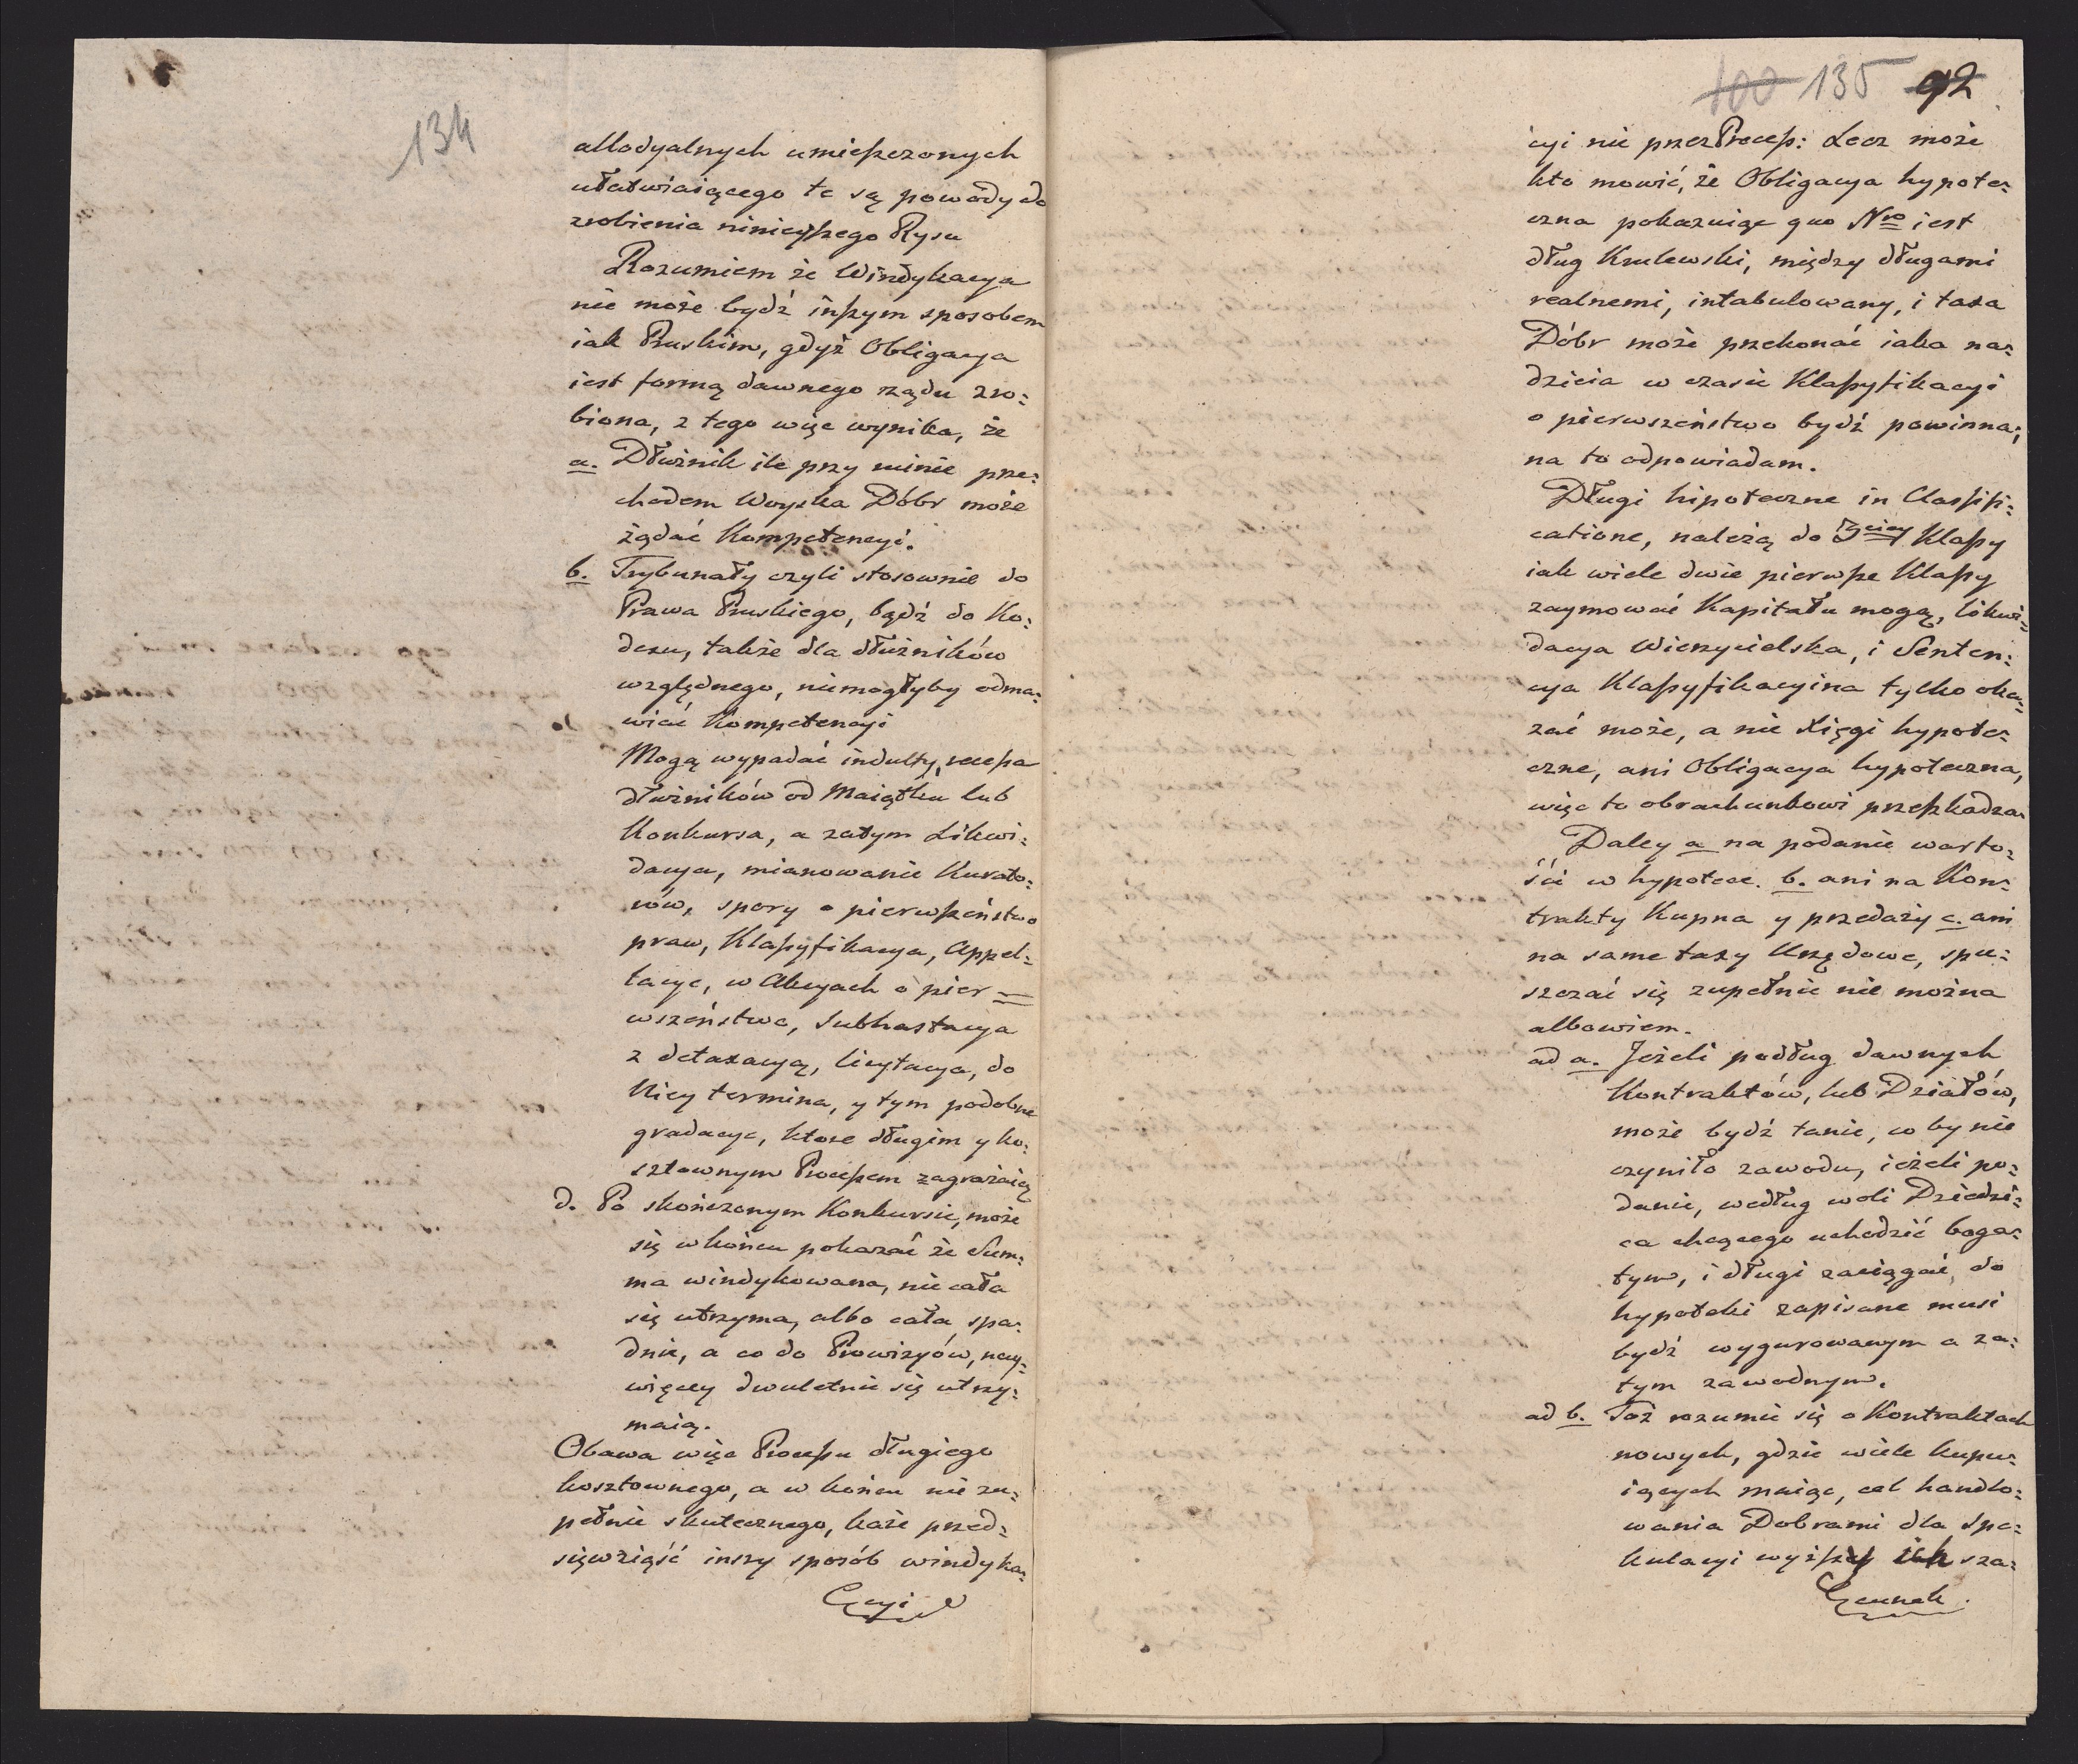 134
allodyalnych umieszczonych
ułatwiaiącego te są powody do
zrobienia ninieyszego Rysu
Rozumiem że Windykacya
nie może bydź inszym sposobem
iak Pruskim, gdyż Obligacya
iest formą dawnego rządu zro=
biona, z tego więc wynika, że
a. Dłużnik ile przy ruinie prze=
chodem Woyska Dóbr może
żądać Kompetencyi.
b. Trybunały czyli stosownie do
Prawa Pruskiego, bądź do Ko=
dexu, także dla dłużników
względnego, niemogłyby odma=
wiać Kompetencyi
Mogą wypadać indulty, recessa
dłużników od Maiątku lub
Konkursa, a zatym Likwi=
dacya, mianowanie Kurato=
rów, spory o pierwszeństwo
praw, Klassyfikacya, Appel=
lacye, w Akcyach o pier=
wszeństwo, Subhastacya
z detaxacyą, licytacya, do
Niey termina, y tym podobne
gradacye, ktore długim y ko=
sztownym Processem zagrażaią
d. Po skończonym Konkursie, może
się w końcu pokazać że Sum=
ma windykowana, nie cała
się utrzyma, albo cała spa=
dnie, a co do Prowizyów, nay=
więcey dwuletnie się utrzy=
maią.
Obawa więc Processu długiego
kosztownego, a w końcu nie zu=
pełnie skutecznego, każe przed=
sięwziąść inszy sposób windyka=
cyi
100 135 92
cyi nie przez Process: Lecz może
kto mowić, że Obligacya hypote=
czna pokazuiąc quo Nro iest
dług Krulewski, między długami
realnemi, intabulowany, i taxa
Dóbr może przekonać iaka na=
dzieia w czasie Klassyfikacyi
o pierwszeństwo bydź powinna;
na to odpowiadam.
Długi hipoteczne in Classifi=
catione, należą do 3ciey Klassy
iak wiele dwie pierwsze Klassy
zaymować Kapitału mogą, likwi=
dacya Wierzycielska, i Senten=
cya Klassyfikacyina tylko oka=
zać może, a nie Xięgi hypote=
czne, ani Obligacya hypoteczna,
więc to obrachunkowi przeszkadza
Daley a na podanie warto=
ści w hypotece. b. ani na Kon=
trakty Kupna y przedaży c ani
na same taxy Urzędowe, spu=
szczać się zupełnie nie można
albowiem.
ad a. Jeżeli podług dawnych
Kontraktów, lub Działów,
może bydź tanie, co by nie
czyniło zawodu, ieżeli po=
danie, według woli Dziedzi=
ca chcącego uchodzić boga=
tym, i długi zaciągać do
hypoteki zapisane musi
bydź wygurowanym a za=
tym zawodnym.
ad b. Toż rozumie się o Kontraktach
nowych, gdzie wiele kupu=
iących maiąc, cel handlo=
wania Dobrami dla spe=
kulacyi wyższy ich sza=
cunek.